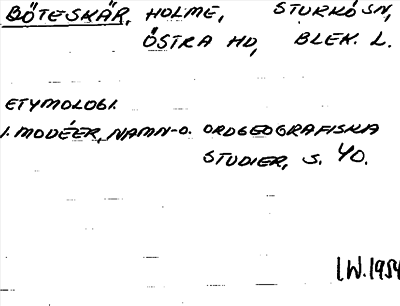 BÖTESKÄR, HOLME, STURKÖ SN,
ÖSTRA HD, BLEK. L.
ETYMOLOGI.
I. MODÉER, NAMN-O. ORDGEOGRAFISKA
STUDIER, S. 40.
I.W. 1954